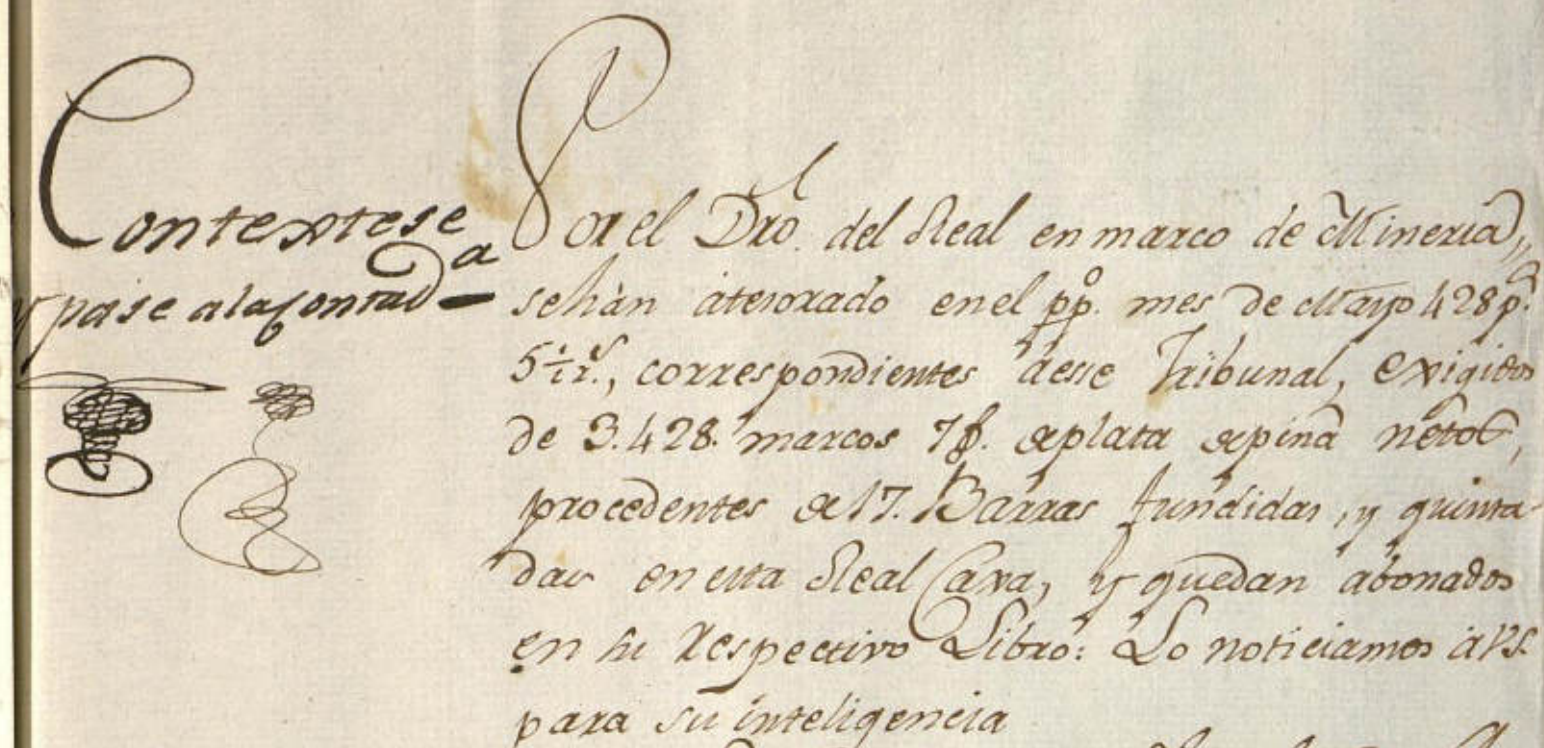 Contextese
y pase a la Contad.a
Por el Dro. del Real en marco de Mineria,,
se hàn atesorado en el pp.o mes de Mayo 428 p.s
5½ r.s, correspondientes àese Tribunal, exigidos
de 3.428. marcos 7 8. de plata de piña netos,
procedentes de 17. Barras fundidas, y quinta-
das en esta Real Caxa, y quedan abonados
en su respectivo Libro: Lo noticiamos à VS.
para su inteligencia